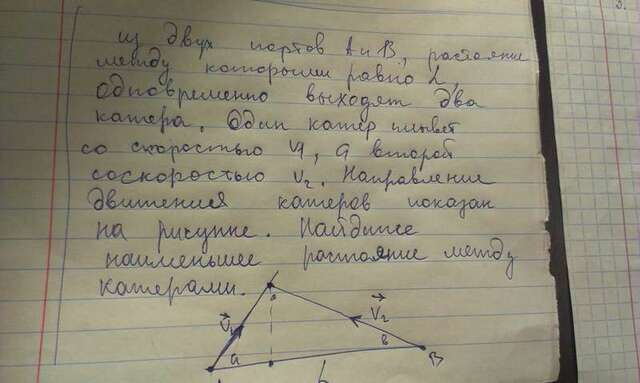 из двух портов A и B, растояние
между которыми равно L,
одновременно выходят два
катера. Один катер плывет
со скоростью V1, а второй
соскоростью V2. Направление
движения катеров показан
на рисунке. Найдите
наименьшее растояние между
катерами.
V1
V2
a
b
B
A
L